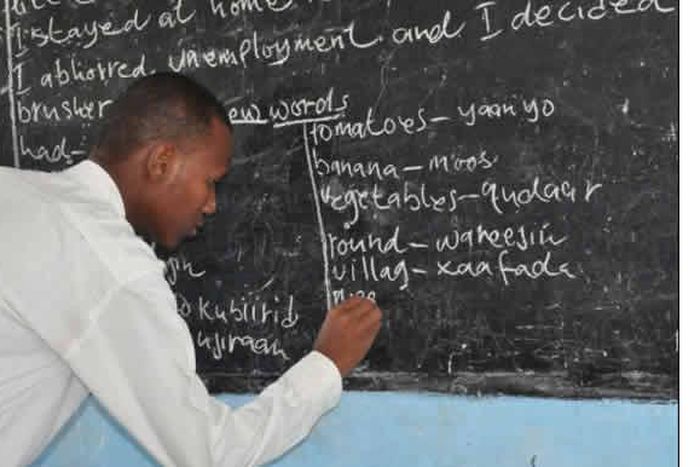 I stayed at home
I abhorred unemployment and I decided
brusher
had-
new words
tomatoes - yaanyo
banana - moos
vegetables - qudaar
round - wareesin
villag - xaafada
kubiirid
ujiraan